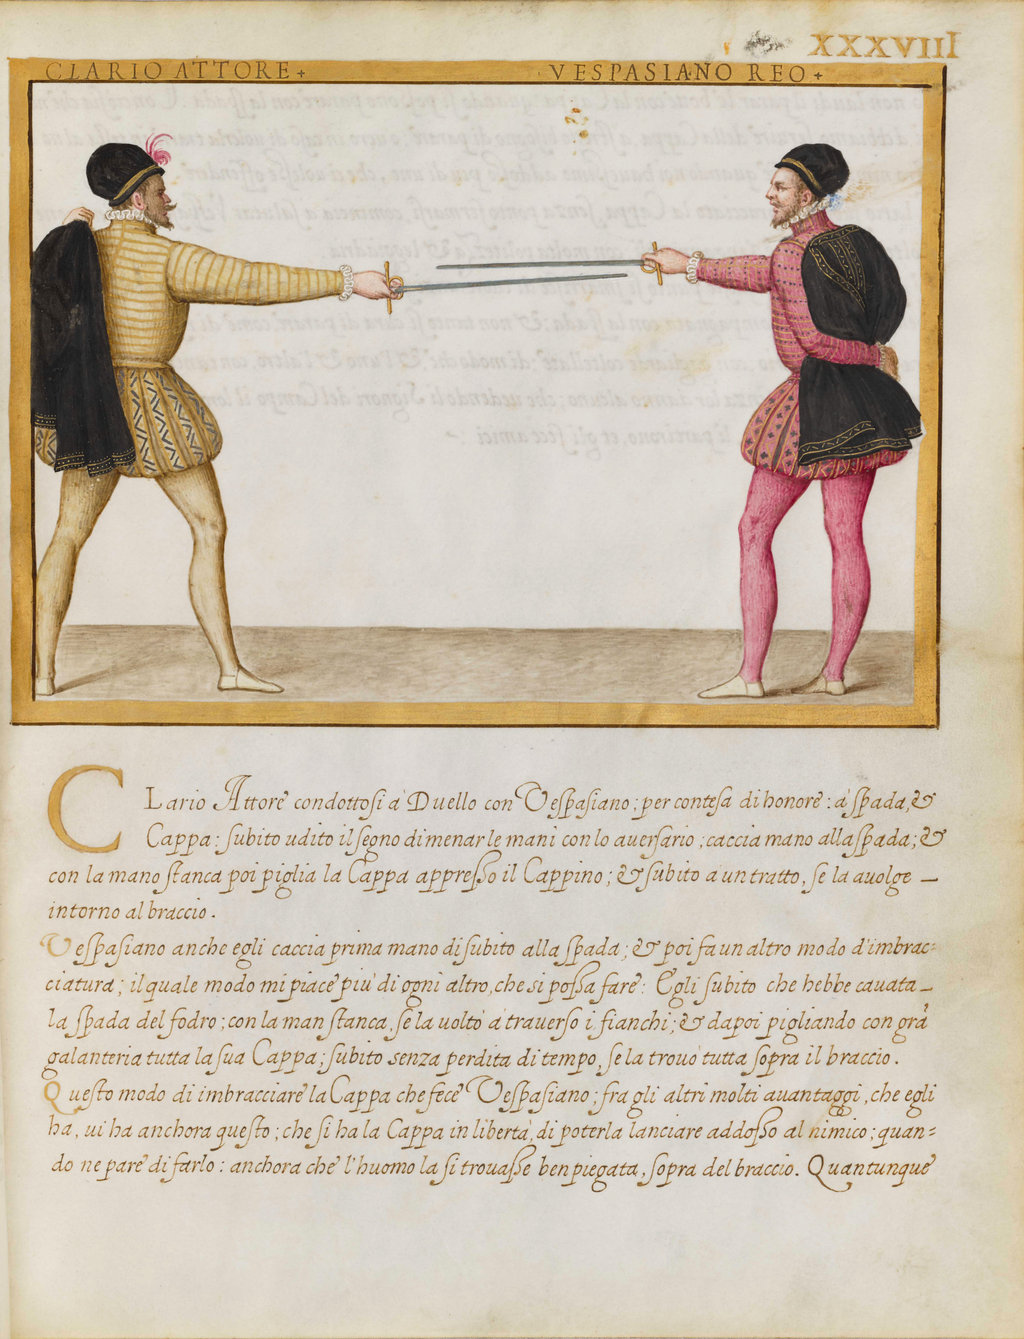 XXXVIII
CLARIO ATTORE +
VESPASIANO REO +
CLario Attore condottosi a' Duello con Vespasiano; per contesa di honore: a' spada, &
Cappa: subito udito il segno di menar le mani con lo auersario; caccia mano alla spada; &
con la mano stanca poi piglia la Cappa appresso il Cappino; & subito a un tratto, se la auolge –
intorno al braccio.
Vespasiano anche egli caccia prima mano di subito alla spada; & poi fa un altro modo d'imbrac=
ciatura; il quale modo mi piace piu' di ogni altro, che si possa fare: Egli subito che hebbe cauata –
la spada del fodro; con la man stanca, se la uolto' a trauerso i fianchi; & dapoi pigliando con grã
galanteria tutta la sua Cappa; subito senza perdita di tempo, se la trouo' tutta sopra il braccio.
Questo modo di imbracciare la Cappa che fece Vespasiano; fra gli altri molti auantaggi, che egli
ha, ui ha anchora questo; che si ha la Cappa in liberta', di poterla lanciare addosso al nimico; quan=
do ne pare di farlo: anchora che l'huomo la si trouasse ben piegata, sopra del braccio. Quantunque